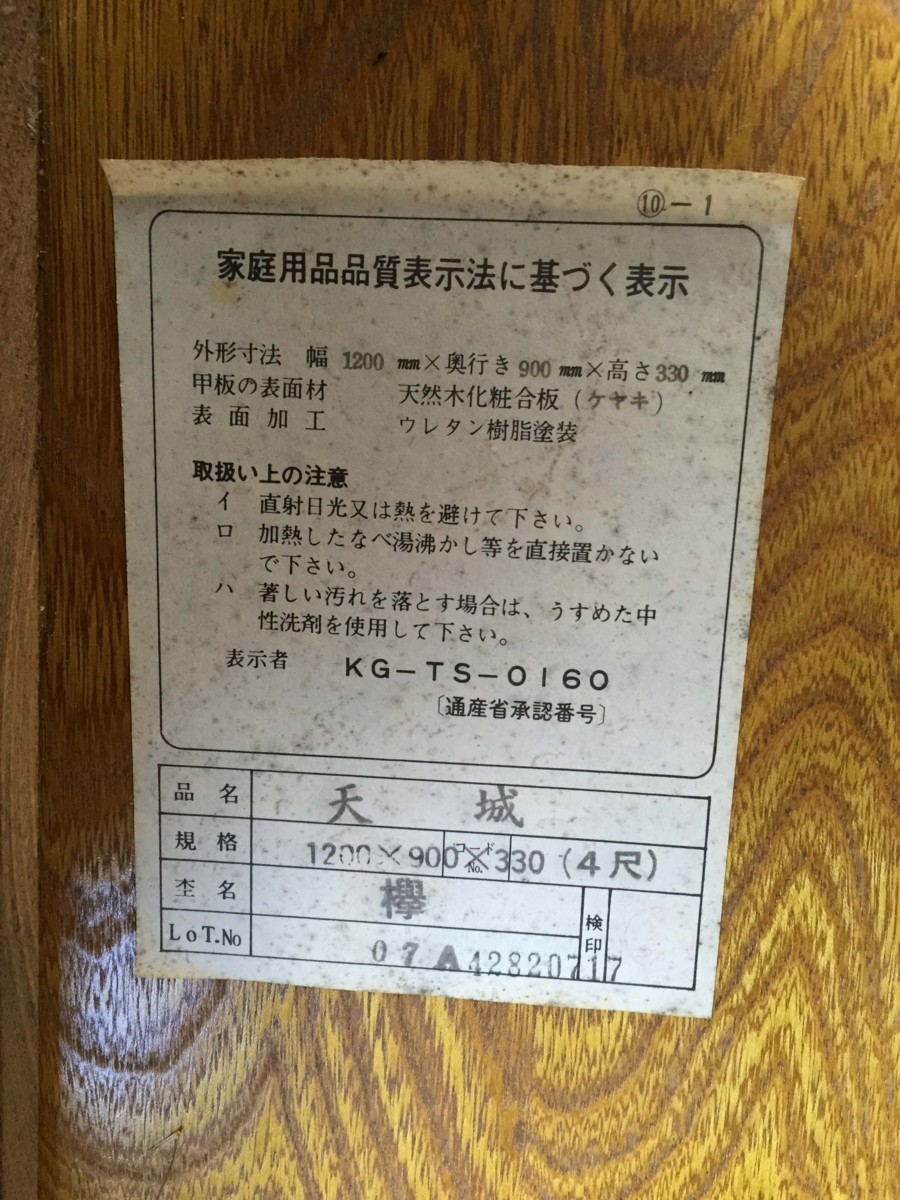 ⑩－1
家庭用品品質表示法に基づく表示
外形寸法 幅 1200 mm×奥行き 900 mm×高さ 330 mm
甲板の表面材 天然木化粧合板（ケヤキ）
表面加工 ウレタン樹脂塗装
取扱い上の注意
イ 直射日光又は熱を避けて下さい。
ロ 加熱したなべ湯沸かし等を直接置かない
で下さい。
ハ 著しい汚れを落とす場合は、うすめた中
性洗剤を使用して下さい。
表示者 KG－TS－0160
〔通産省承認番号〕
品名 天城
規格 1200×900×330（4尺）
コードNo.
杢名 欅
検印
LoT.No 07A42820717